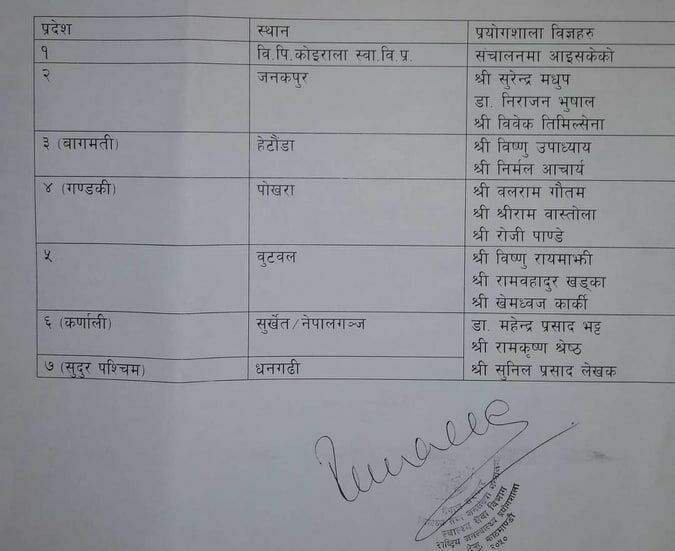 प्रदेश स्थान प्रयोगशाला विज्ञहरु
१ वि.पि.कोइराला स्वा.वि.प्र. संचालनमा आइसकेको
२ जनकपुर श्री सुरेन्द्र मधुप
डा. निराजन भुषाल
श्री विवेक तिमिल्सेना
३ (वागमती) हेटौंडा श्री विष्णु उपाध्याय
श्री निर्मल आचार्य
४ (गण्डकी) पोखरा श्री वलराम गौतम
श्री श्रीराम वास्तोला
श्री रोजी पाण्डे
५ वुटवल श्री विष्णु रायमाझी
श्री रामवहादुर खड्का
श्री खेमध्वज कार्की
६ (कर्णाली) सुर्खेत/नेपालगञ्ज डा. महेन्द्र प्रसाद भट्ट
श्री रामकृष्ण श्रेष्ठ
७ (सुदुर पश्चिम) धनगढी श्री सुनिल प्रसाद लेखक
स्वास्थ्य सेवा विभाग
राष्ट्रिय जनस्वास्थ्य प्रयोगशाला
टेकु, काठमाण्डौ